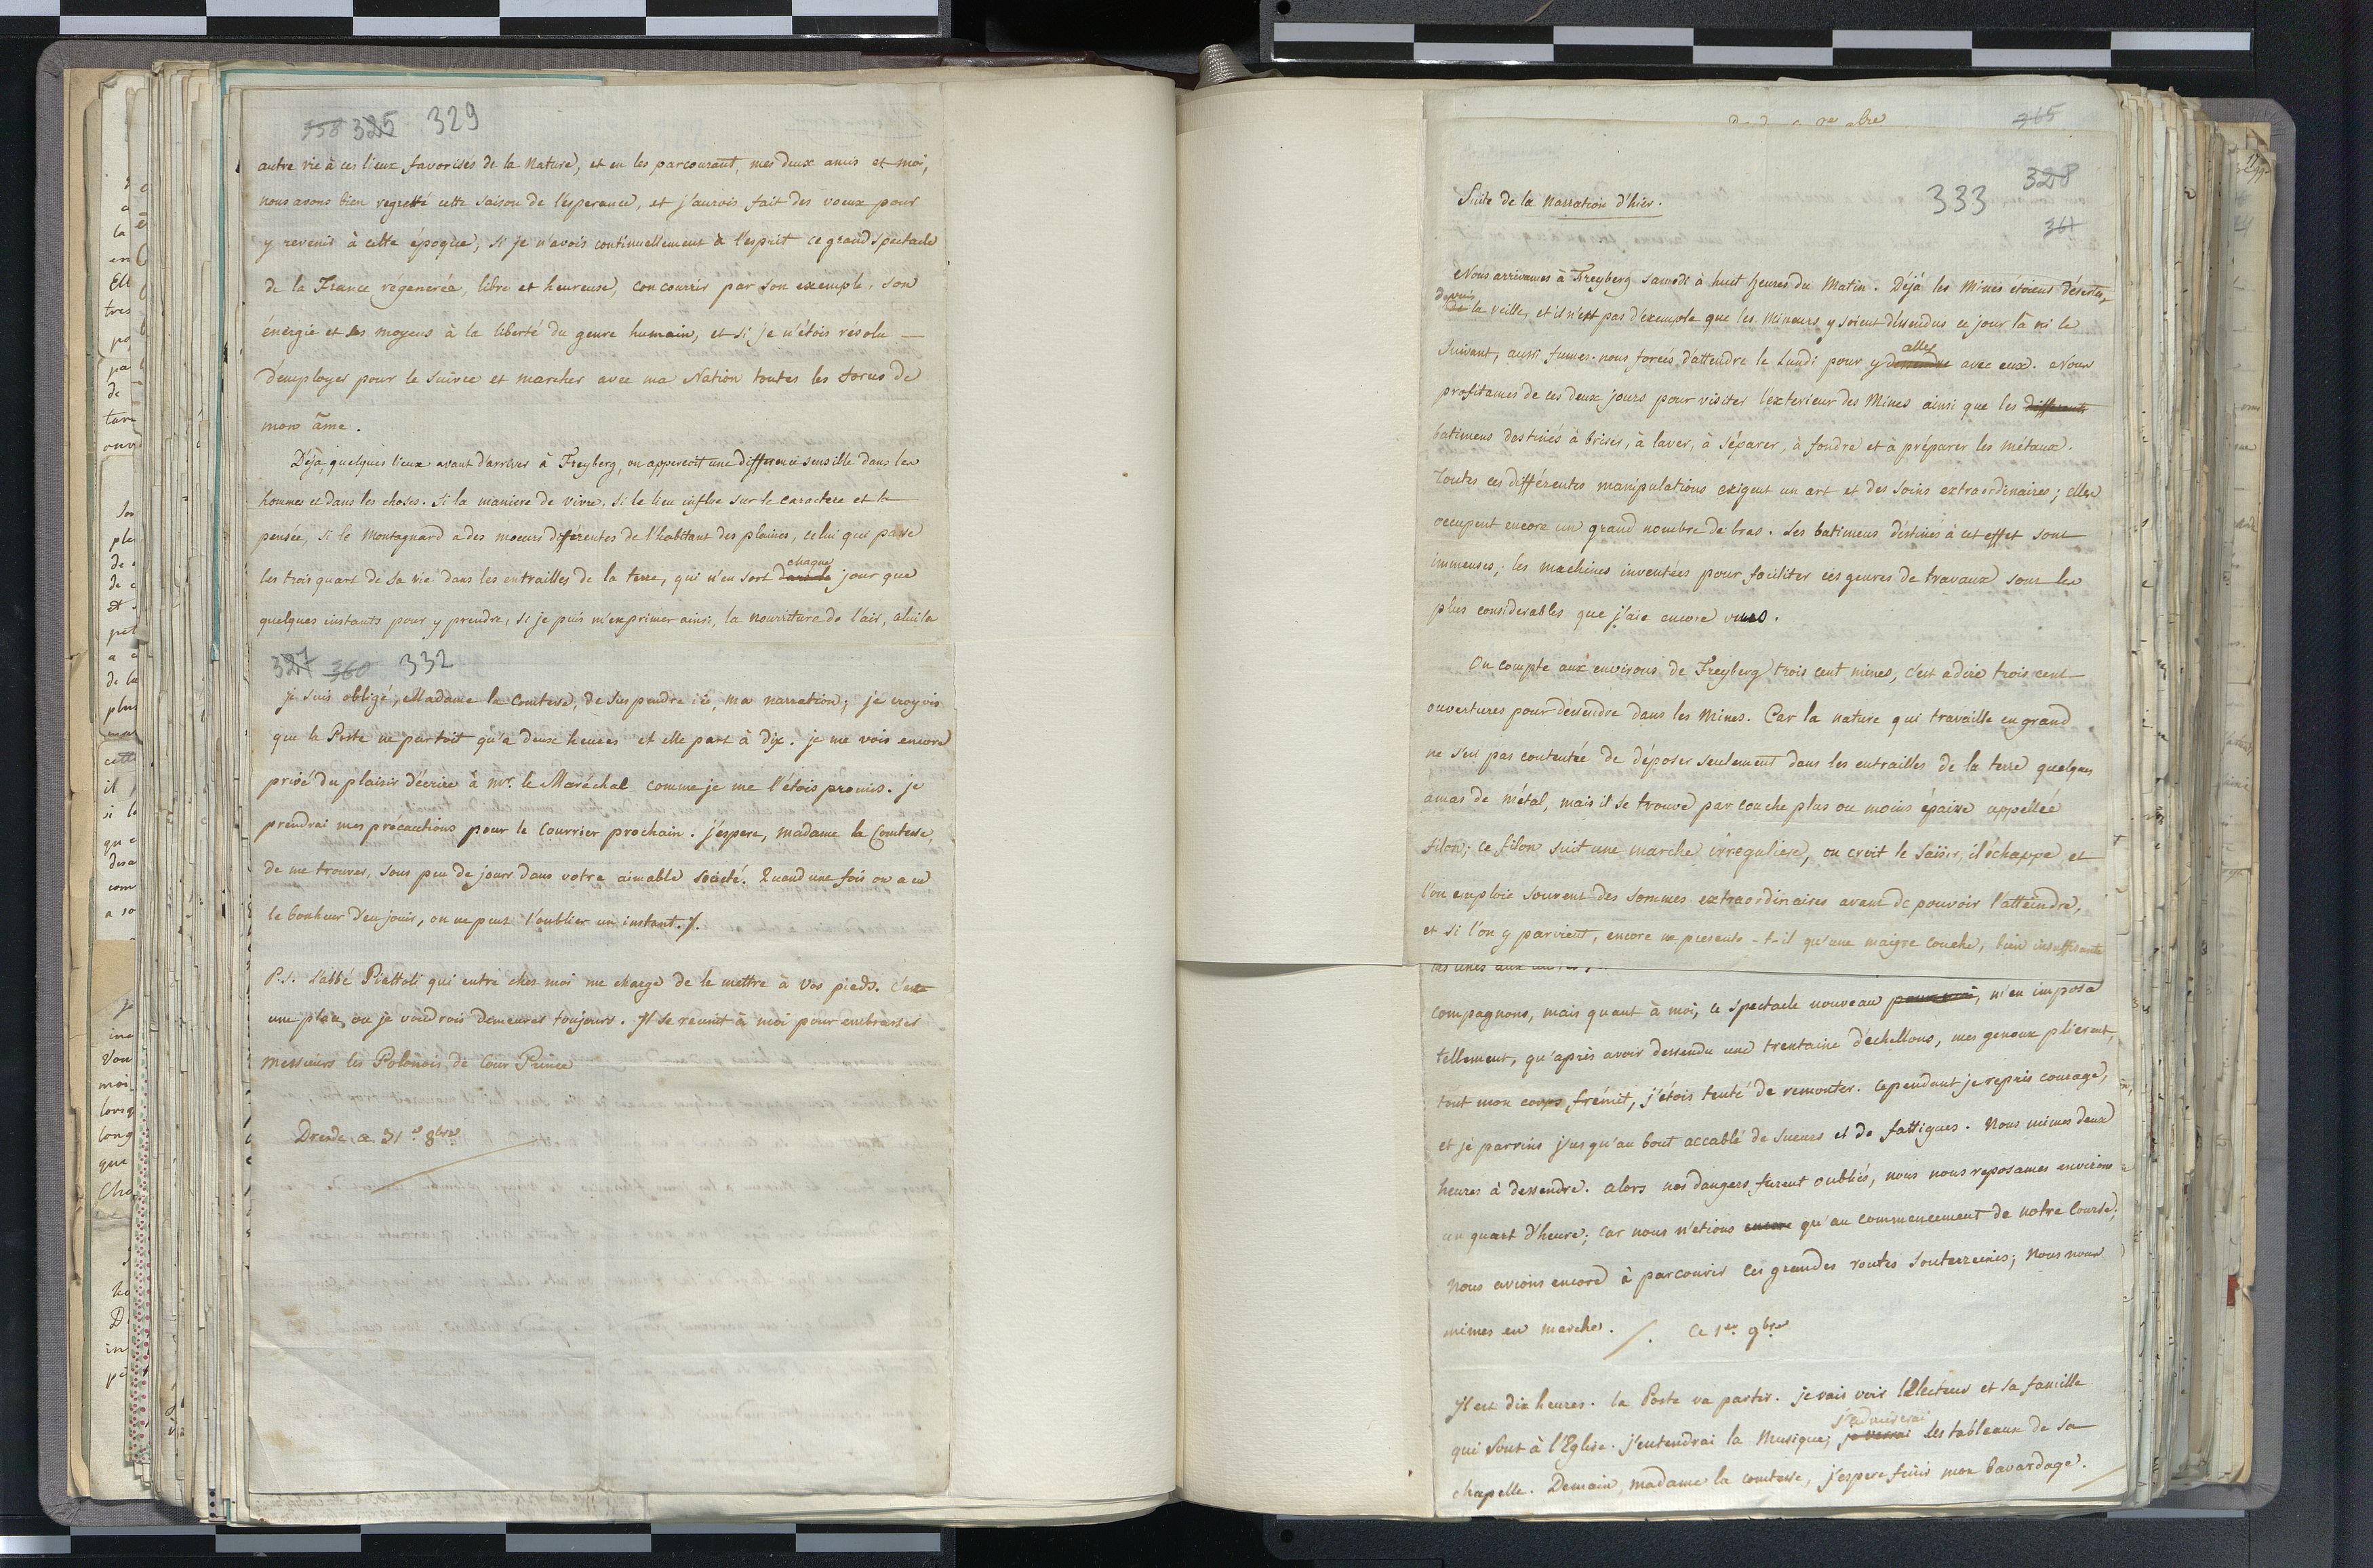 358 325 329
autre vie à ces lieux favorisés de la Nature, et en les parcourant, mes deux amis et moi,
nous avons bien regretté cette saison de l'esperance, et j'aurois fait des voeux pour
y revenir à cette époque, si je n'avois continuellement à l'esprit ce grand spectacle
de la France régenerée, libre et heureuse, concourrir par son exemple, son
énergie et ses moyens à la liberté du genre humain, et si je n'étois résolu —
d'employer pour le suivre et marcher avec ma Nation toutes les forces de
mon âme.
Déja quelques lieux avant d'arriver à Freyberg, on apperçoit une différence sensible dans les
hommes et dans les choses. Si la maniere de vivre, si le lieu influe sur le caractere et la
pensée, si le Montagnard a des moeurs différentes de l'habitant des plaines, celui qui passe
chaque
les trois quart de sa vie dans les entrailles de la terre, qui n'en sort jour que
quelques instants pour y prendre, si je puis m'exprimer ainsi, la nourriture de l'air, celui la
327 360 332
je suis obligé, Madame la Comtesse, de suspendre ici, ma narration; je croyois
que la Poste ne partoit qu'a deux heures et elle part à dix. je me vois encore
privé du plaisir d'écrire à Mr. le Maréchal comme je me l'étois promis. je
prendrai mes précautions pour le Courrier prochain. j'espere, madame la Comtesse,
de me trouver, sous peu de jours dans votre aimable société. Quand une fois on a eu
le bonheur d'en jouir, on ne peut l'oublier un instant./.
P.S. l'abbé Piattoli qui entre chez moi me charge de le mettre à vos pieds. c'est
une place, ou je voudrois demeurer toujours. Il se reunit à moi pour embrasser
Messieurs les Polonois, de Cour Prince
Dresde ce 31 e 8bre
365
328
333
361
Suite de la Narration d'hier.
Nous arrivames à Freyberg samedi à huit heures du Matin. Déjà les Mines etoient désertes,
depuis
de la veille, et il n'est pas d'exemple que les Mineurs y soient déscendus ce jour là ni le
aller
suivant, aussi fumes-nous forcés d'attendre le Lundi pour y descendre avec eux. Nous
profitames de ces deux jours pour visiter l'exterieur des Mines ainsi que les differents
batimens destinés à briser, à laver, à séparer, à fondre et à préparer les métaux.
Toutes ces différentes manipulations exigent un art et des soins extraordinaires; elles
occupent encore un grand nombre de bras. Les batimens destinés à cet effet sont
immenses; les machines inventées pour faciliter ces genres de travaux sont les
plus considerables que j'aie encore vues.
On compte aux environs de Freyberg trois cent mines, c'est a dire trois cent
ouvertures pour déscendre dans les Mines. Car la nature qui travaille en grand
ne s'est pas contentée de déposer seulement dans les entrailles de la terre quelques
amas de métal, mais il se trouve par couche plus ou moins épaisse appellée
filon; ce filon suit une marche irréguliere, on croit le saisir, il échappe et
l'on emploie souvent des sommes extraordinaires avant de pouvoir l'atteindre,
et si l'on y parvient, encore ne presente-t-il qu'une maigre couche, bien insuffisante
compagnons, mais quant à moi, ce spectacle nouveau pour moi, m'en imposa
tellement, qu'après avoir dessendu une trentaine d'échellons, mes genoux plierent,
tout mon corps frémit, j'étois tenté de remonter. Cependant je repris courage,
et je parvins jusqu'au bout accablé de sueurs et de fattigues. Nous mimes deux
heures à dessendre. alors nos dangers furent oubliés, nous nous reposames environ
un quart d'heure; car nous n'etions encore qu'au commencement de notre course;
Nous avions encore à parcourir ces grandes routes souterreines; Nous nous
mimes en marche. /. Ce 1er 9bre
Il est dix heures. la Poste va partir. je vais voir l'Electeur et sa famille
j'admirerai
qui sont à l'Eglise. j'entendrai la Musique; je verrai les tableaux de sa
chapelle. Demain, madame la comtesse, j'espere finir mon bavardage.